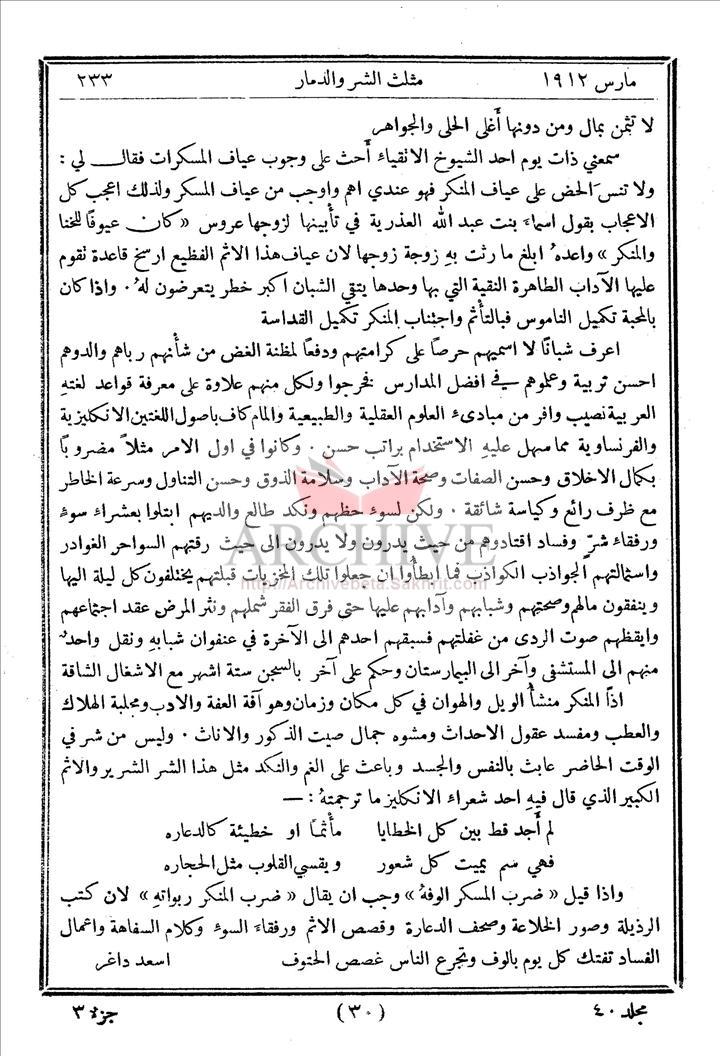 مارس ١٩١٢ مثلث الشر والدمار ٢٣٣
لا تثمن بمال ومن دونها أغلى الحلى والجواهر
سمعني ذات يوم احد الشيوخ الاتقياء أحث على وجوب عياف المسكرات فقال لي :
ولا تنس الحض على عياف المنكر فهو عندي اهم واوجب من عياف المسكر ولذلك اعجب كل
الاعجاب بقول اسماء بنت عبد الله العذرية في تأبينها لزوجها عروس « كان عيوفًا للخنا
والمنكر » واعده ُ ابلغ ما رثت بهِ زوجة زوجها لان عياف هذا الاثم الفظيع ارسخ قاعدة تقوم
عليها الآداب الطاهرة النقية التي بها وحدها يتقي الشبان اكبر خطر يتعرضون لهُ ٠ واذا كان
بالمحبة تكميل الناموس فبالتأثم واجتناب المنكر تكميل القداسة
اعرف شبانًا لا اسميهم حرصاً على كرامتهم ودفعاً لمظنة الغض من شأنهم رباهم والدوهم
احسن تربية وعلموهم في افضل المدارس فخرجوا ولكل منهم علاوة على معرفة قواعد لغتهِ
العربية نصيب وافر من مبادىء العلوم العقلية والطبيعية والمام كاف باصول اللغتين الانكليزية
والفرنساوية مما سهل عليهِ الاستخدام براتب حسن ٠ وكانوا في اول الامر مثلاً مضروبًا
بكمال الاخلاق وحسن الصفات وصحة الآداب وسلامة الذوق وحسن التناول وسرعة الخاطر
مع ظرف رائع وكياسة شائقة ٠ ولكن لسوء حظهم ونكد طالع والديهم ابتلوا بعشراء سوء
ورفقاء شرّ وفساد اقتادوهم من حيث يدرون ولا يدرون الى حيث رقتهم السواحر الغوادر
واستمالتهم الجواذب الكواذب فما ابطأوا ان جعلوا تلك المخزيات قبلتهم يختلفون كل ليلة اليها
وينفقون مالهم وصحتهم وشبابهم وآدابهم عليها حتى فرق الفقر شملهم ونثر المرض عقد اجتماعهم
وايقظهم صوت الردى من غفلتهم فسبقهم احدهم الى الآخرة في عنفوان شبابهِ ونقل واحدٌ
منهم الى المستشفى وآخر الى البيمارستان وحكم على آخر بالسجن ستة اشهر مع الاشغال الشاقة
اذًا المنكر منشأُ الويل والهوان في كل مكان وزمان وهو آفة العفة والادب ومجلبة الهلاك
والعطب ومفسد عقول الاحداث ومشوه جمال صيت الذكور والاناث ٠ وليس من شر في
الوقت الحاضر عابث بالنفس والجسد وباعث على الغم والنكد مثل هذا الشر الشرير والاثم
الكبير الذي قال فيهِ احد شعراء الانكليز ما ترجمتهُ : —
لم أَجد قط بين كل الخطايا مأثمًا او خطيئة كالدعاره
فهي سم يميت كل شعور ويقسي القلوب مثل الحجاره
واذا قيل « ضرب المسكر الوفهُ » وجب ان يقال « ضرب المنكر ربواتهِ » لان كتب
الرذيلة وصور الخلاعة وصحف الدعارة وقصص الاثم ورفقاء السوء وكلام السفاهة واعمال
الفساد تفتك كل يوم بالوف وتجرع الناس غصص الحتوف اسعد داغر
مجلد ٤٠ (٣٠) جزء ٣
ARCHIVE
http://Archivebeta.Sakhrit.com